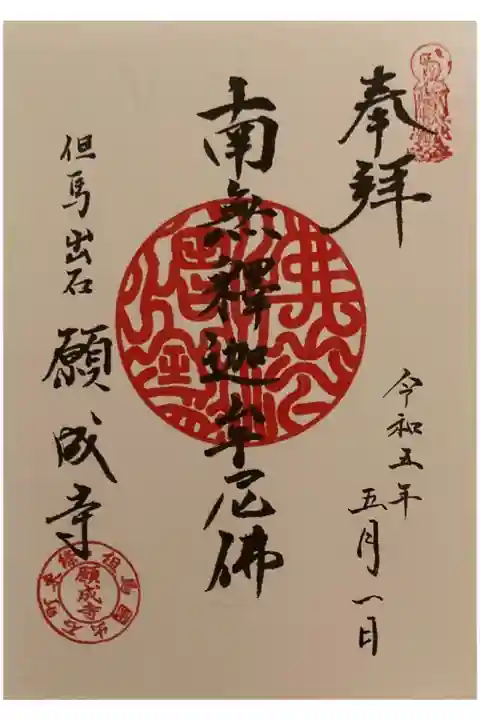 奉拜
令和五年
五月一日
南無釋迦牟尼佛
但馬出石
願成寺
願成寺